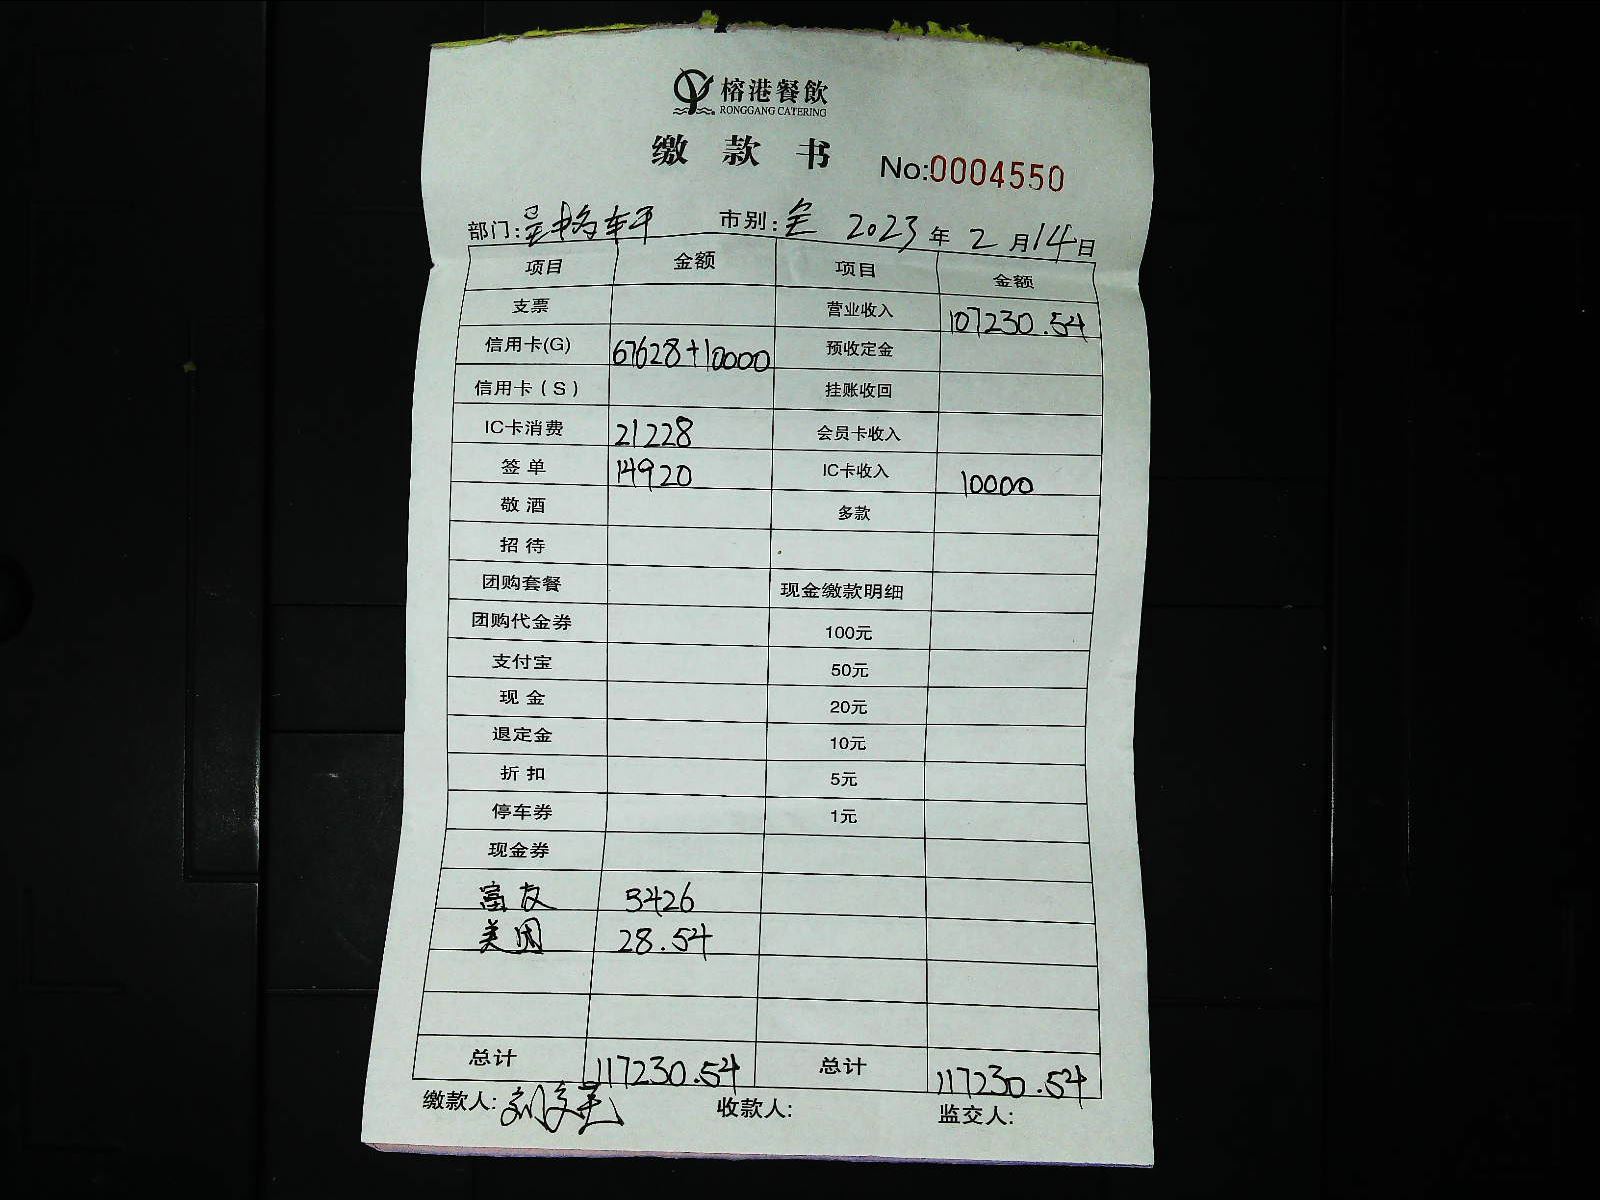 榕港餐飲
RONGGANG CATERING
缴款书
No:0004550
部门: 市别:全 2023年2月14日
项目 金额 项目 金额
支票 营业收入 107230.54
信用卡(G) 67628+10000 预收定金
信用卡(S) 挂账收回
IC卡消费 21228 会员卡收入
签单 14920 IC卡收入 10000
敬酒 多款
招待
团购套餐 现金缴款明细
团购代金券 100元
支付宝 50元
现金 20元
退定金 10元
折扣 5元
停车券 1元
现金券
富友 3426
美团 28.54
总计 117230.54 总计 117230.54
缴款人: 收款人: 监交人: